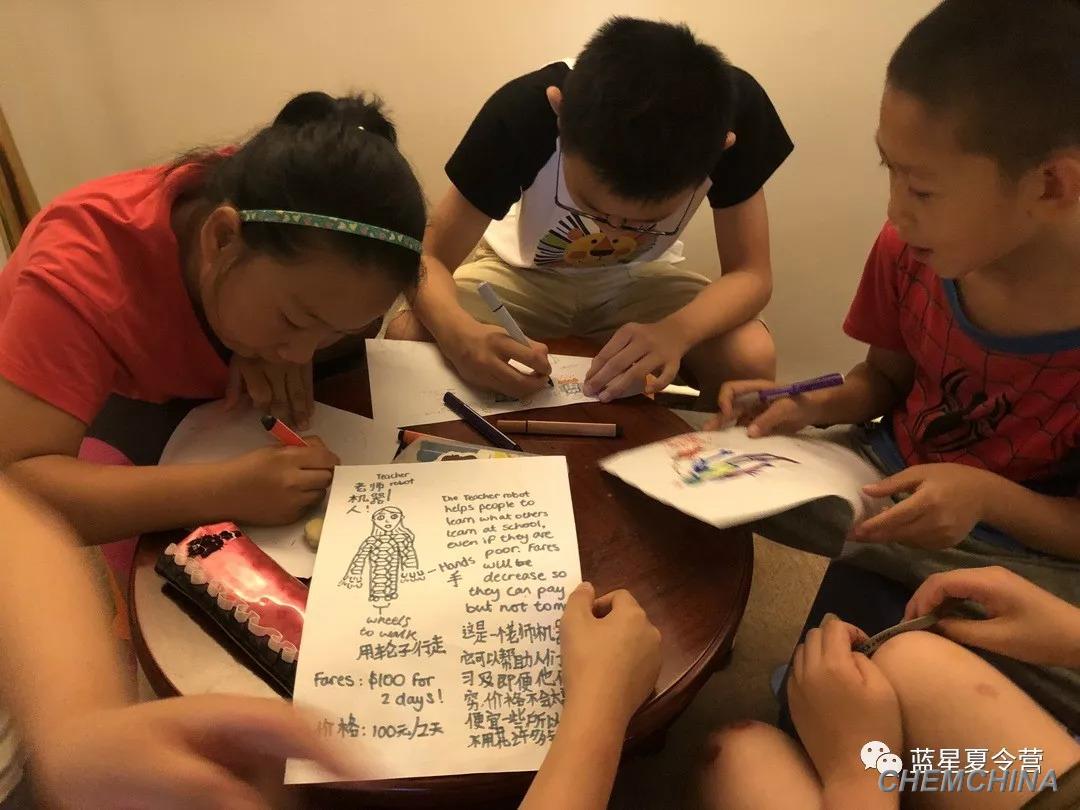 Teacher robot
老师
机器
人!
Hands
手
wheels
to walk
用轮子行走
Fares: $100 for
2 days!
价格: 100元/2天
The Teacher robot
helps people to
learn what others
learn at school,
even if they are
poor. Fares
will be
decrease so
they can pay
but not to
这是一个老师机
它可以帮助人们
习及即使他
穷.价格不会
便宜一些所以
不用花许多
蓝星夏令营
CHEMCHINA